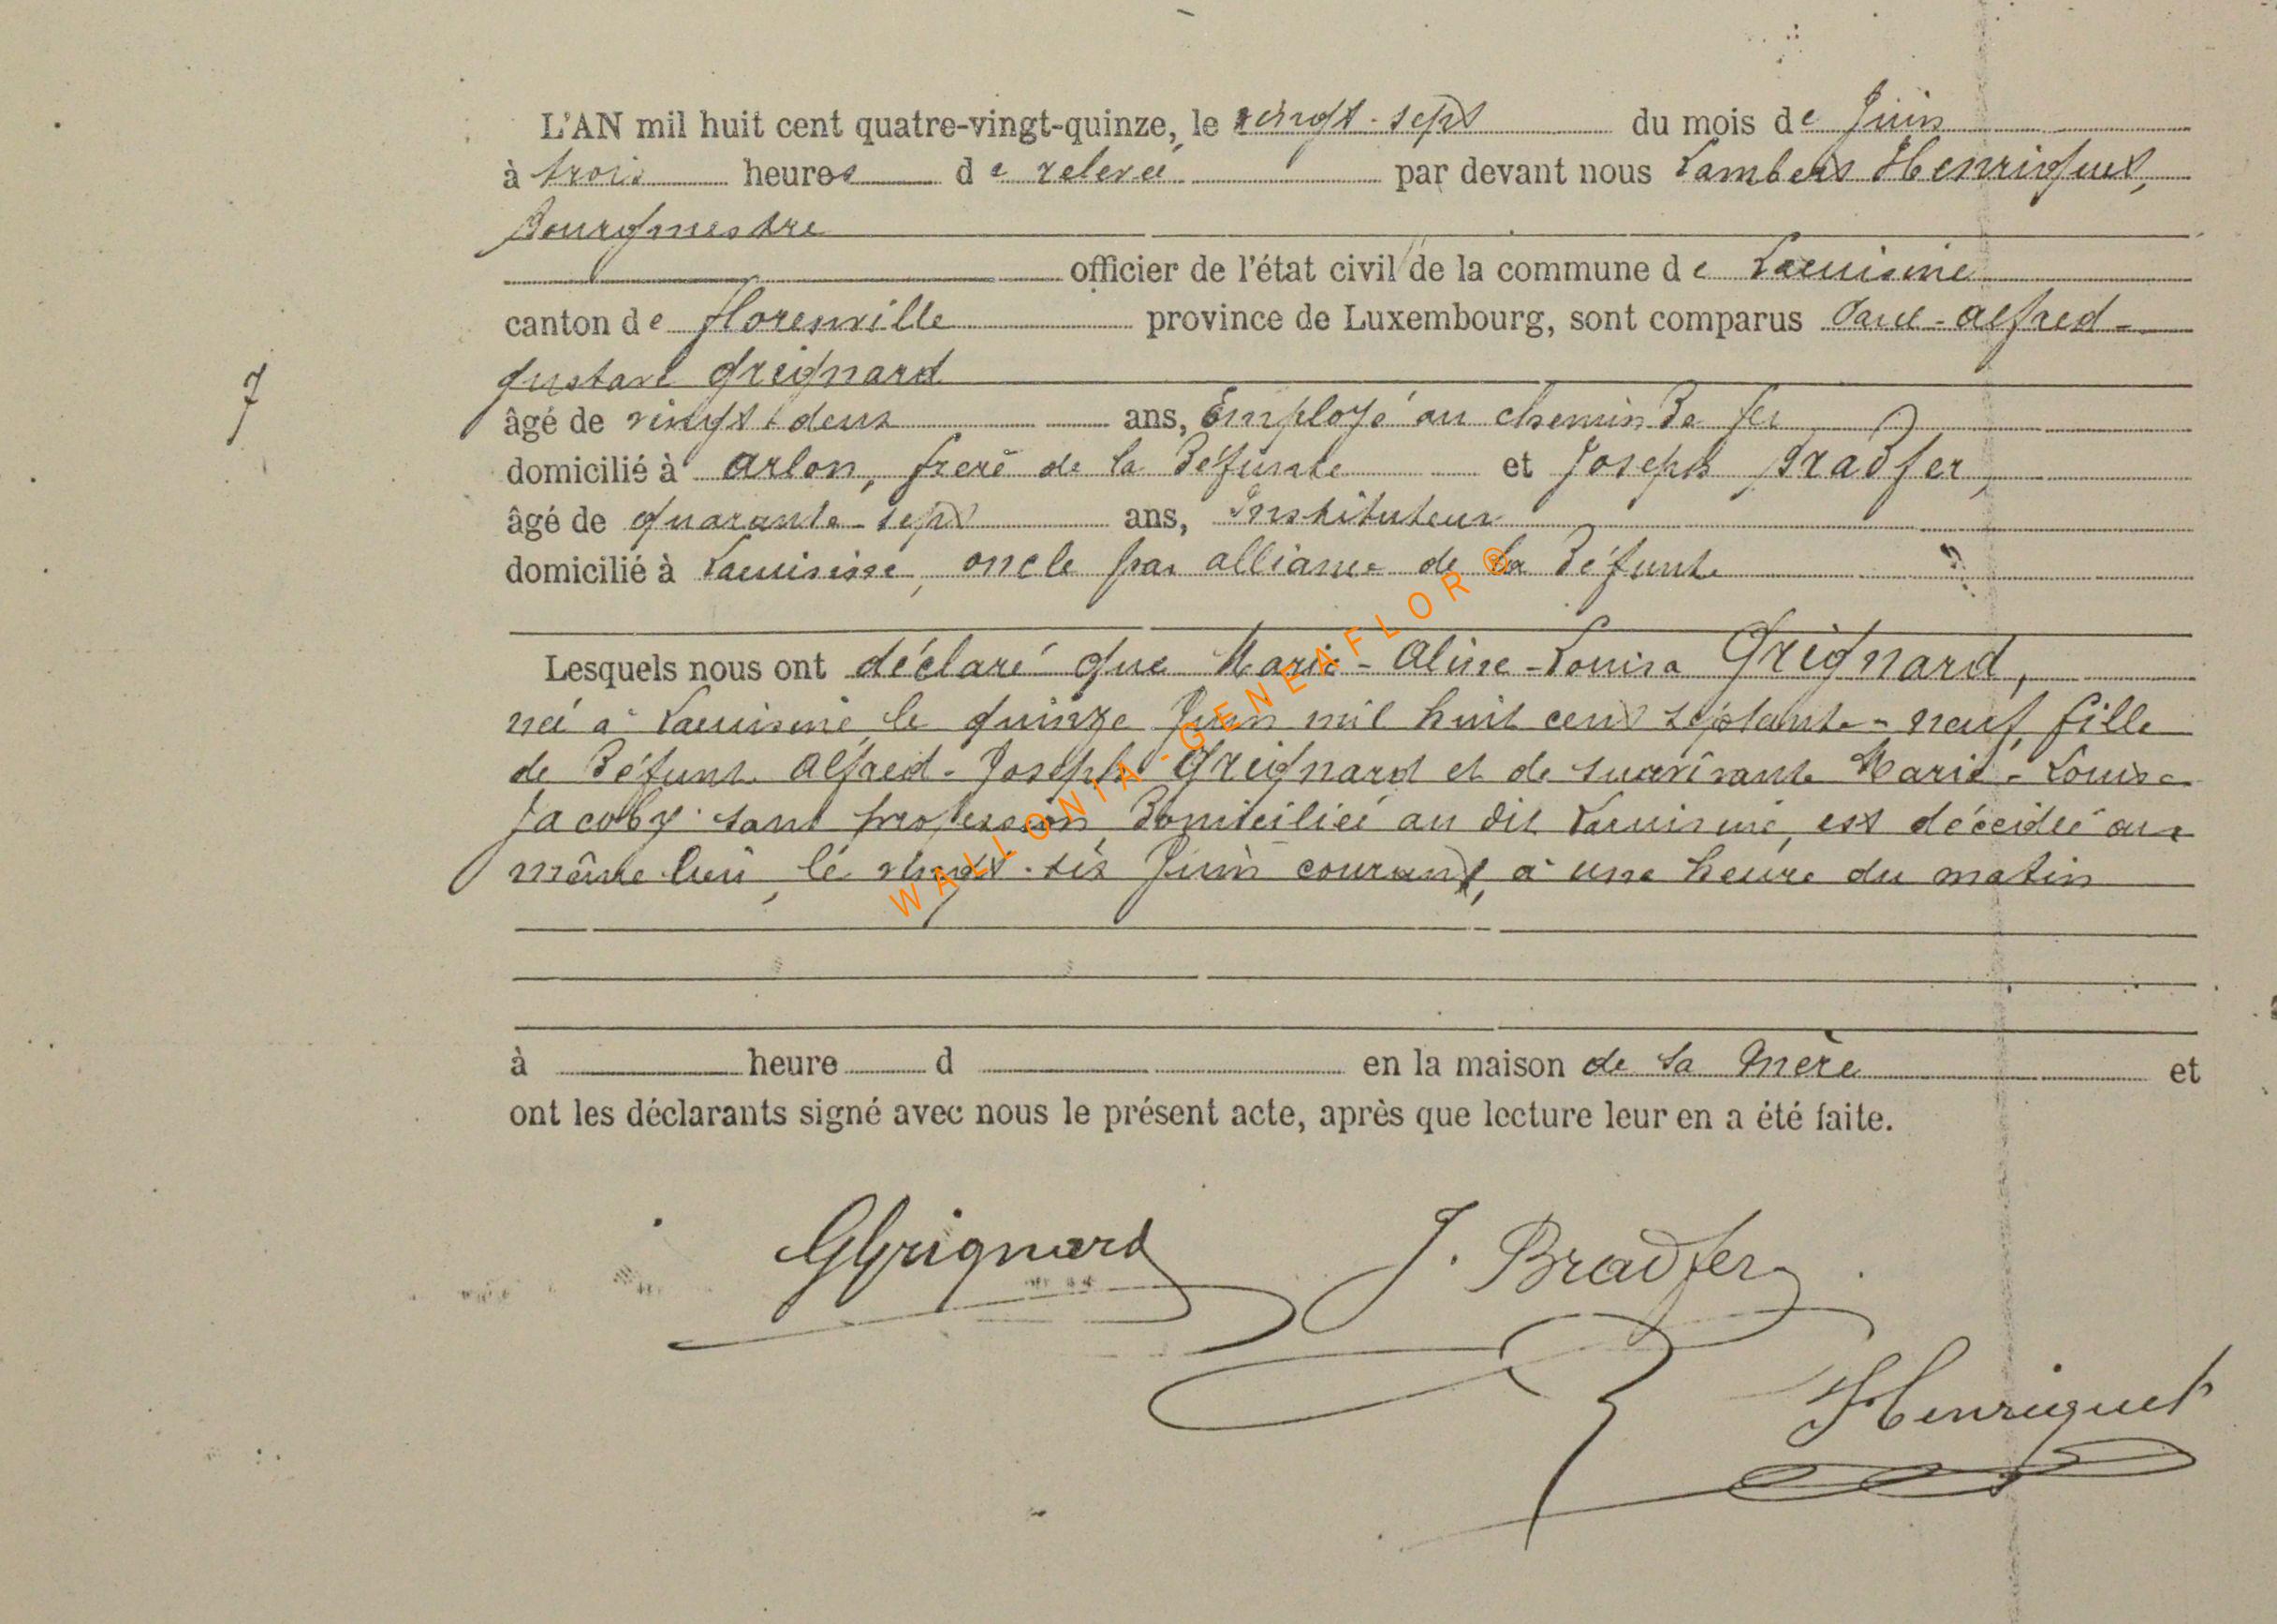 L'AN mil huit cent quatre-vingt-quinze, le vingt-sept du mois de Juin
à trois heures de relevée par devant nous Lambert Henriquet,
Bourgmestre
officier de l'état civil de la commune de Lacuisine
canton de Florenville province de Luxembourg, sont comparus Paul-Alfred-
Gustave Grignard
7
âgé de vingt-deux ans, Employé au chemin de fer
domicilié à Arlon, frère de la défunte et Joseph Bradfer,
âgé de quarante-sept ans, Instituteur
domicilié à Lacuisine, oncle par alliance de la défunte
Lesquels nous ont déclaré que Marie-Aline-Louise Grignard,
née à Lacuisine, le quinze Juin mil huit cent septante-neuf, fille
de défunt Alfred-Joseph Grignard et de survivante Marie-Louise
Jacoby sans profession domiciliée au dit Lacuisine, est décédée au
même lieu, le vingt-six Juin courant, à une heure du matin
WALLONIA-GENEAFLOR®
à heure d en la maison de sa mère et
ont les déclarants signé avec nous le présent acte, après que lecture leur en a été faite.
GGrignard J. Bradfer
Henriquet